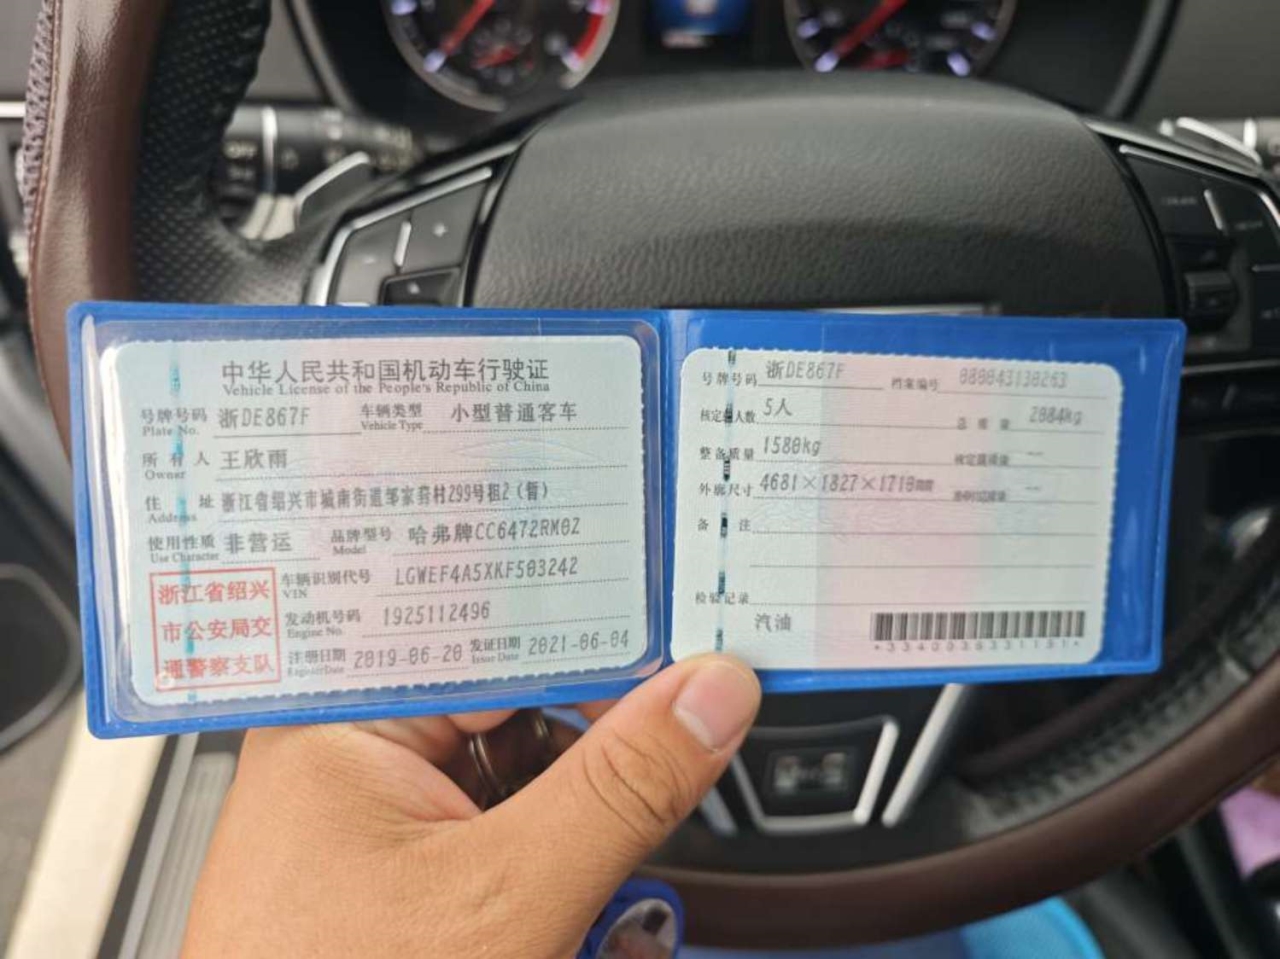 中华人民共和国机动车行驶证
Vehicle License of the People's Republic of China
号牌号码 浙DE867F 车辆类型 小型普通客车
Plate No. Vehicle Type
所有人 王欣雨
Owner
住址 浙江省绍兴市城南街道邹家葑村299号租2（暂）
Address
使用性质 非营运 品牌型号 哈弗牌CC6472RM02
Use Character Model
浙江省绍兴
市公安局交
通警察支队
车辆识别代号 LGWEF4A5XKF503242
VIN
发动机号码 1925112496
Engine No.
注册日期 2019-06-20 发证日期 2021-06-04
Register Date Issue Date
号牌号码 浙DE867F 档案编号
核定载人数 5人 总质量 2084kg
整备质量 1580kg 核定载质量 --
外廓尺寸 4681×1827×1710mm --
备注
检验记录
汽油
OFF